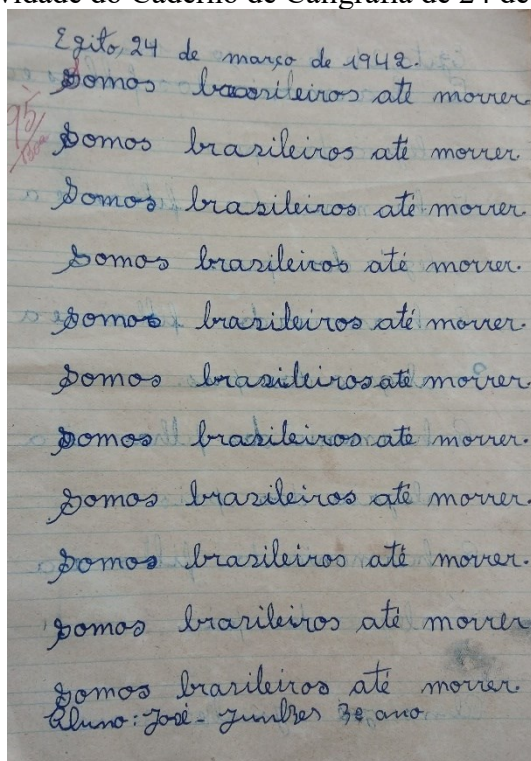 vidade do Caderno de Caligrafia de 24 de
Egito, 24 de março de 1942.
Somos brasileiros até morrer
95
Boa
Somos brasileiros até morrer
Somos brasileiros até morrer.
Somos brasileiros até morrer.
Somos brasileiros até morrer.
Somos brasileiros até morrer
Somos brasileiros até morrer.
Somos brasileiros até morrer.
Somos brasileiros até morrer.
Somos brasileiros até morrer
Somos brasileiros até morrer
Aluno: José 3º ano